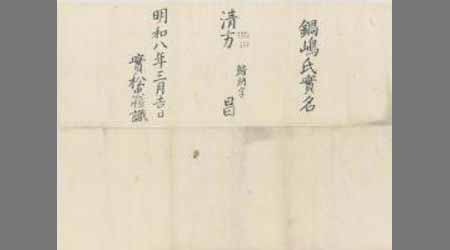 鍋嶋氏實名
清方 歸納字 昌
明和八年三月吉日
實松 識